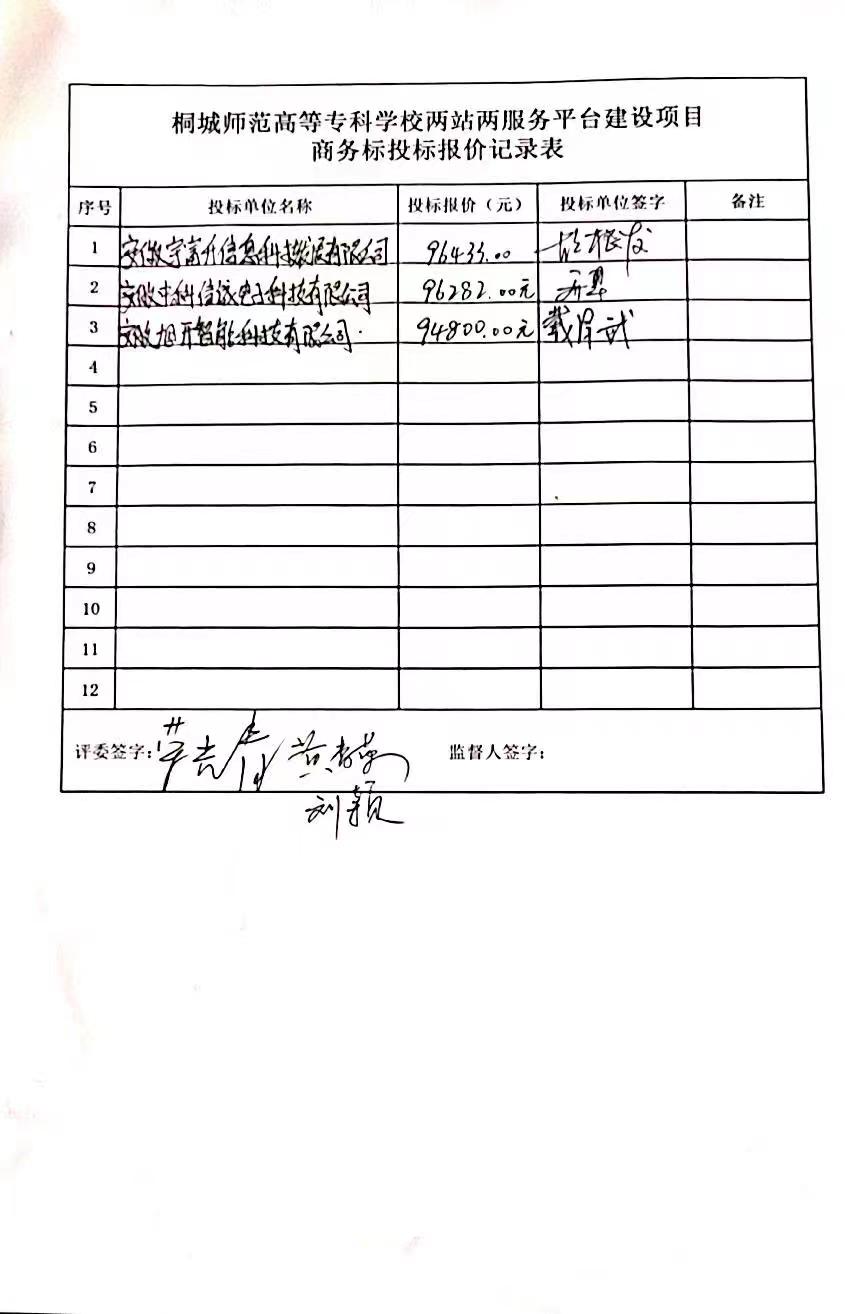 桐城师范高等专科学校两站两服务平台建设项目
商务标投标报价记录表
序号 投标单位名称 投标报价（元） 投标单位签字 备注
1 安徽宇富升信息科技发展有限公司 96433.00
2 安徽中科信诚电子科技有限公司 96282.00元
3 安徽旭开智能科技有限公司. 94800.00元 戴泽武
4
5
6
7
8
9
10
11
12
评委签字： 监督人签字：
刘颖